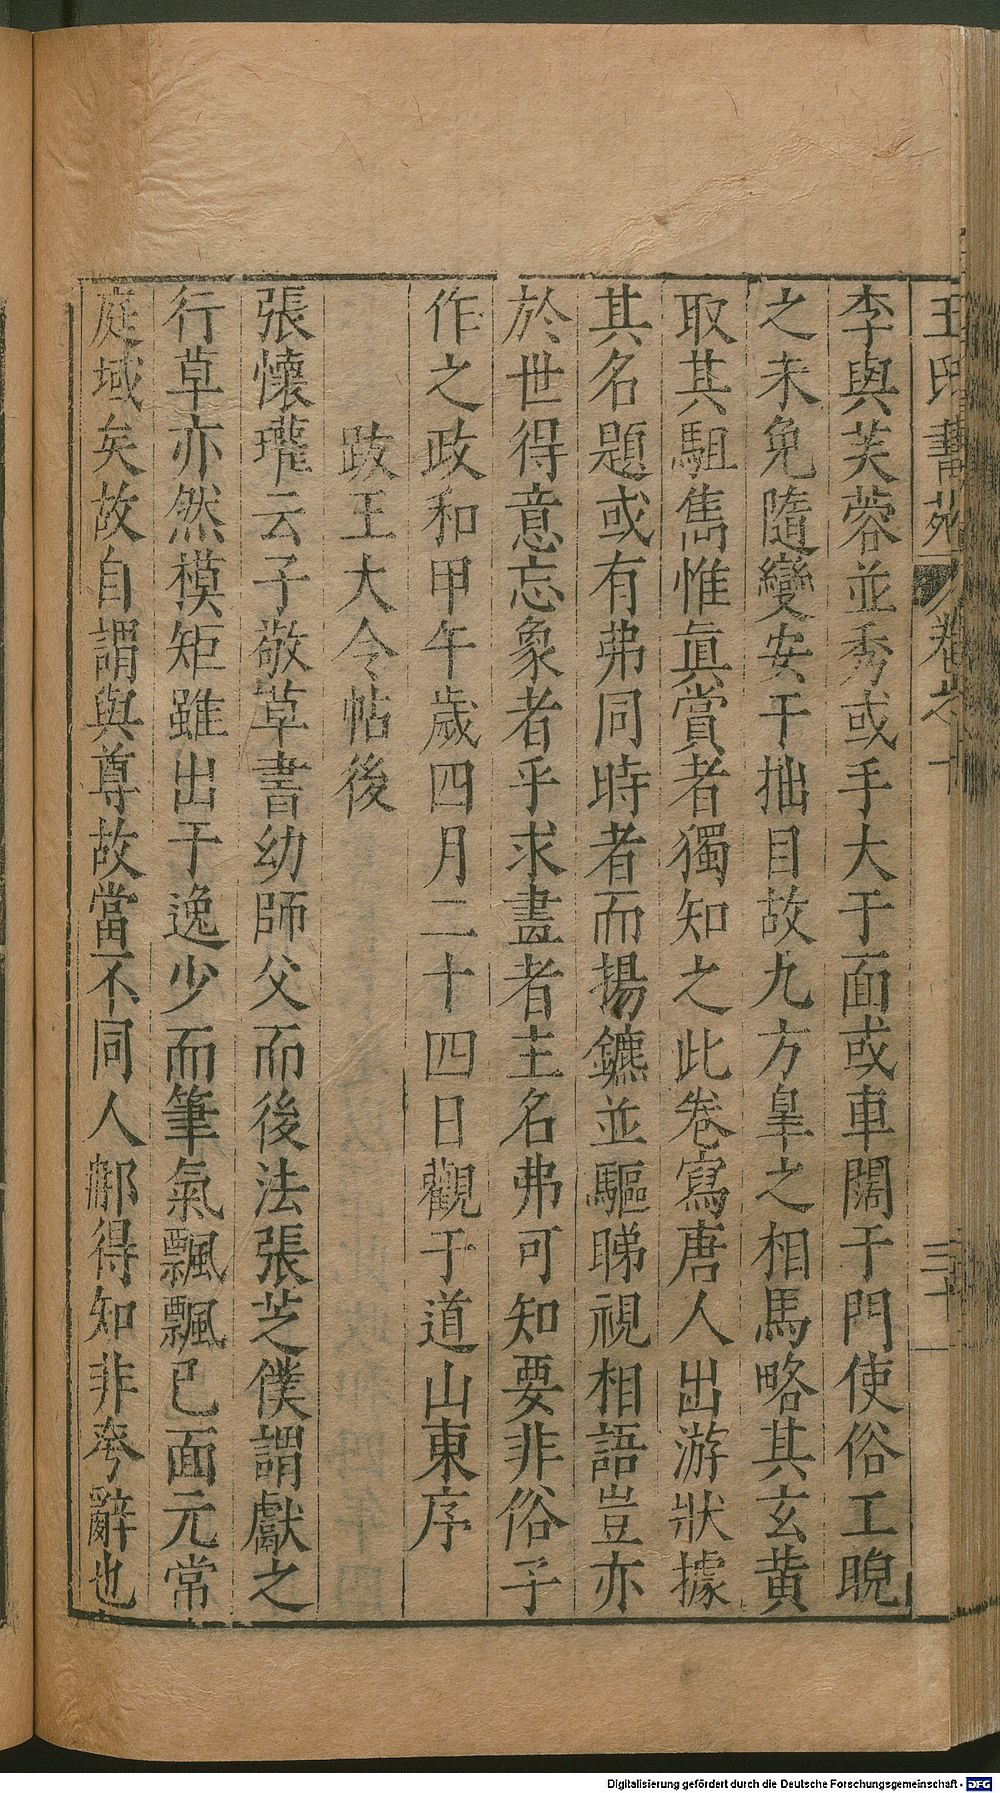 王氏書苑 卷之十
李與芙蓉並秀或手大于面或車闊于門使俗工睨
之未免隨變安于拙目故九方皐之相馬略其玄黄
取其駔雋惟眞賞者獨知之此卷寫唐人出游狀據
其名題或有弗同時者而揚鑣並驅睇視相語豈亦
於世得意忘象者乎求畫者主名弗可知要非俗子
作之政和甲午歲四月二十四日觀于道山東序
跋王大令帖後
張懷瓘云子敬草書幼師父而後法張芝僕謂獻之
行草亦然模矩雖出于逸少而筆氣飄飄已面元常
庭域矣故自謂與尊故當不同人郍得知非夸辭也
Digitalisierung gefördert durch die Deutsche Forschungsgemeinschaft - DFG